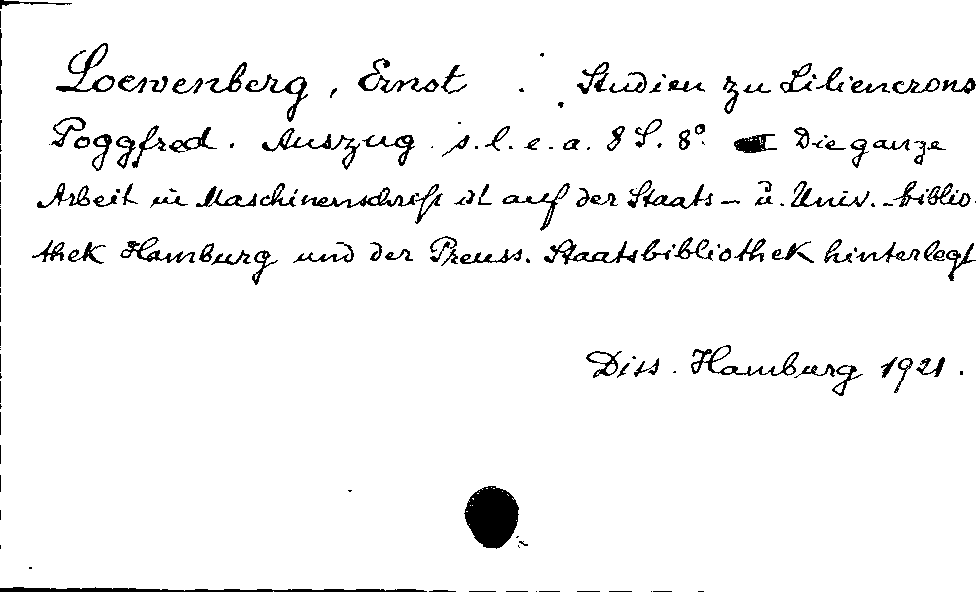 Loewenberg, Ernst. Studien zu Liliencrons
Poggfred. Auszug s. l. e. a. 8 S. 8°. Die ganze
Arbeit in Maschinenschrift ist auf der Staats- u. Univ.-biblio-
thek Hamburg und der Preuss. Staatsbibliothek hinterlegt
Diss. Hamburg 1921.